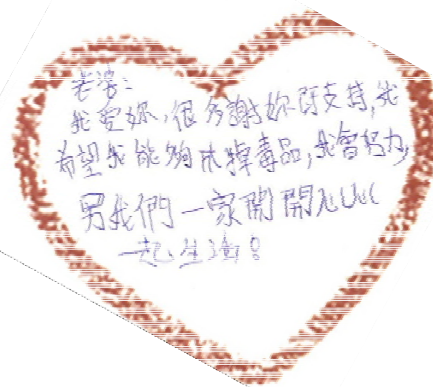 老婆：
我愛妳，很多謝妳的支持，我
希望我能夠戒掉毒品，我會努力，
另我們一家開開心心
一起生活！